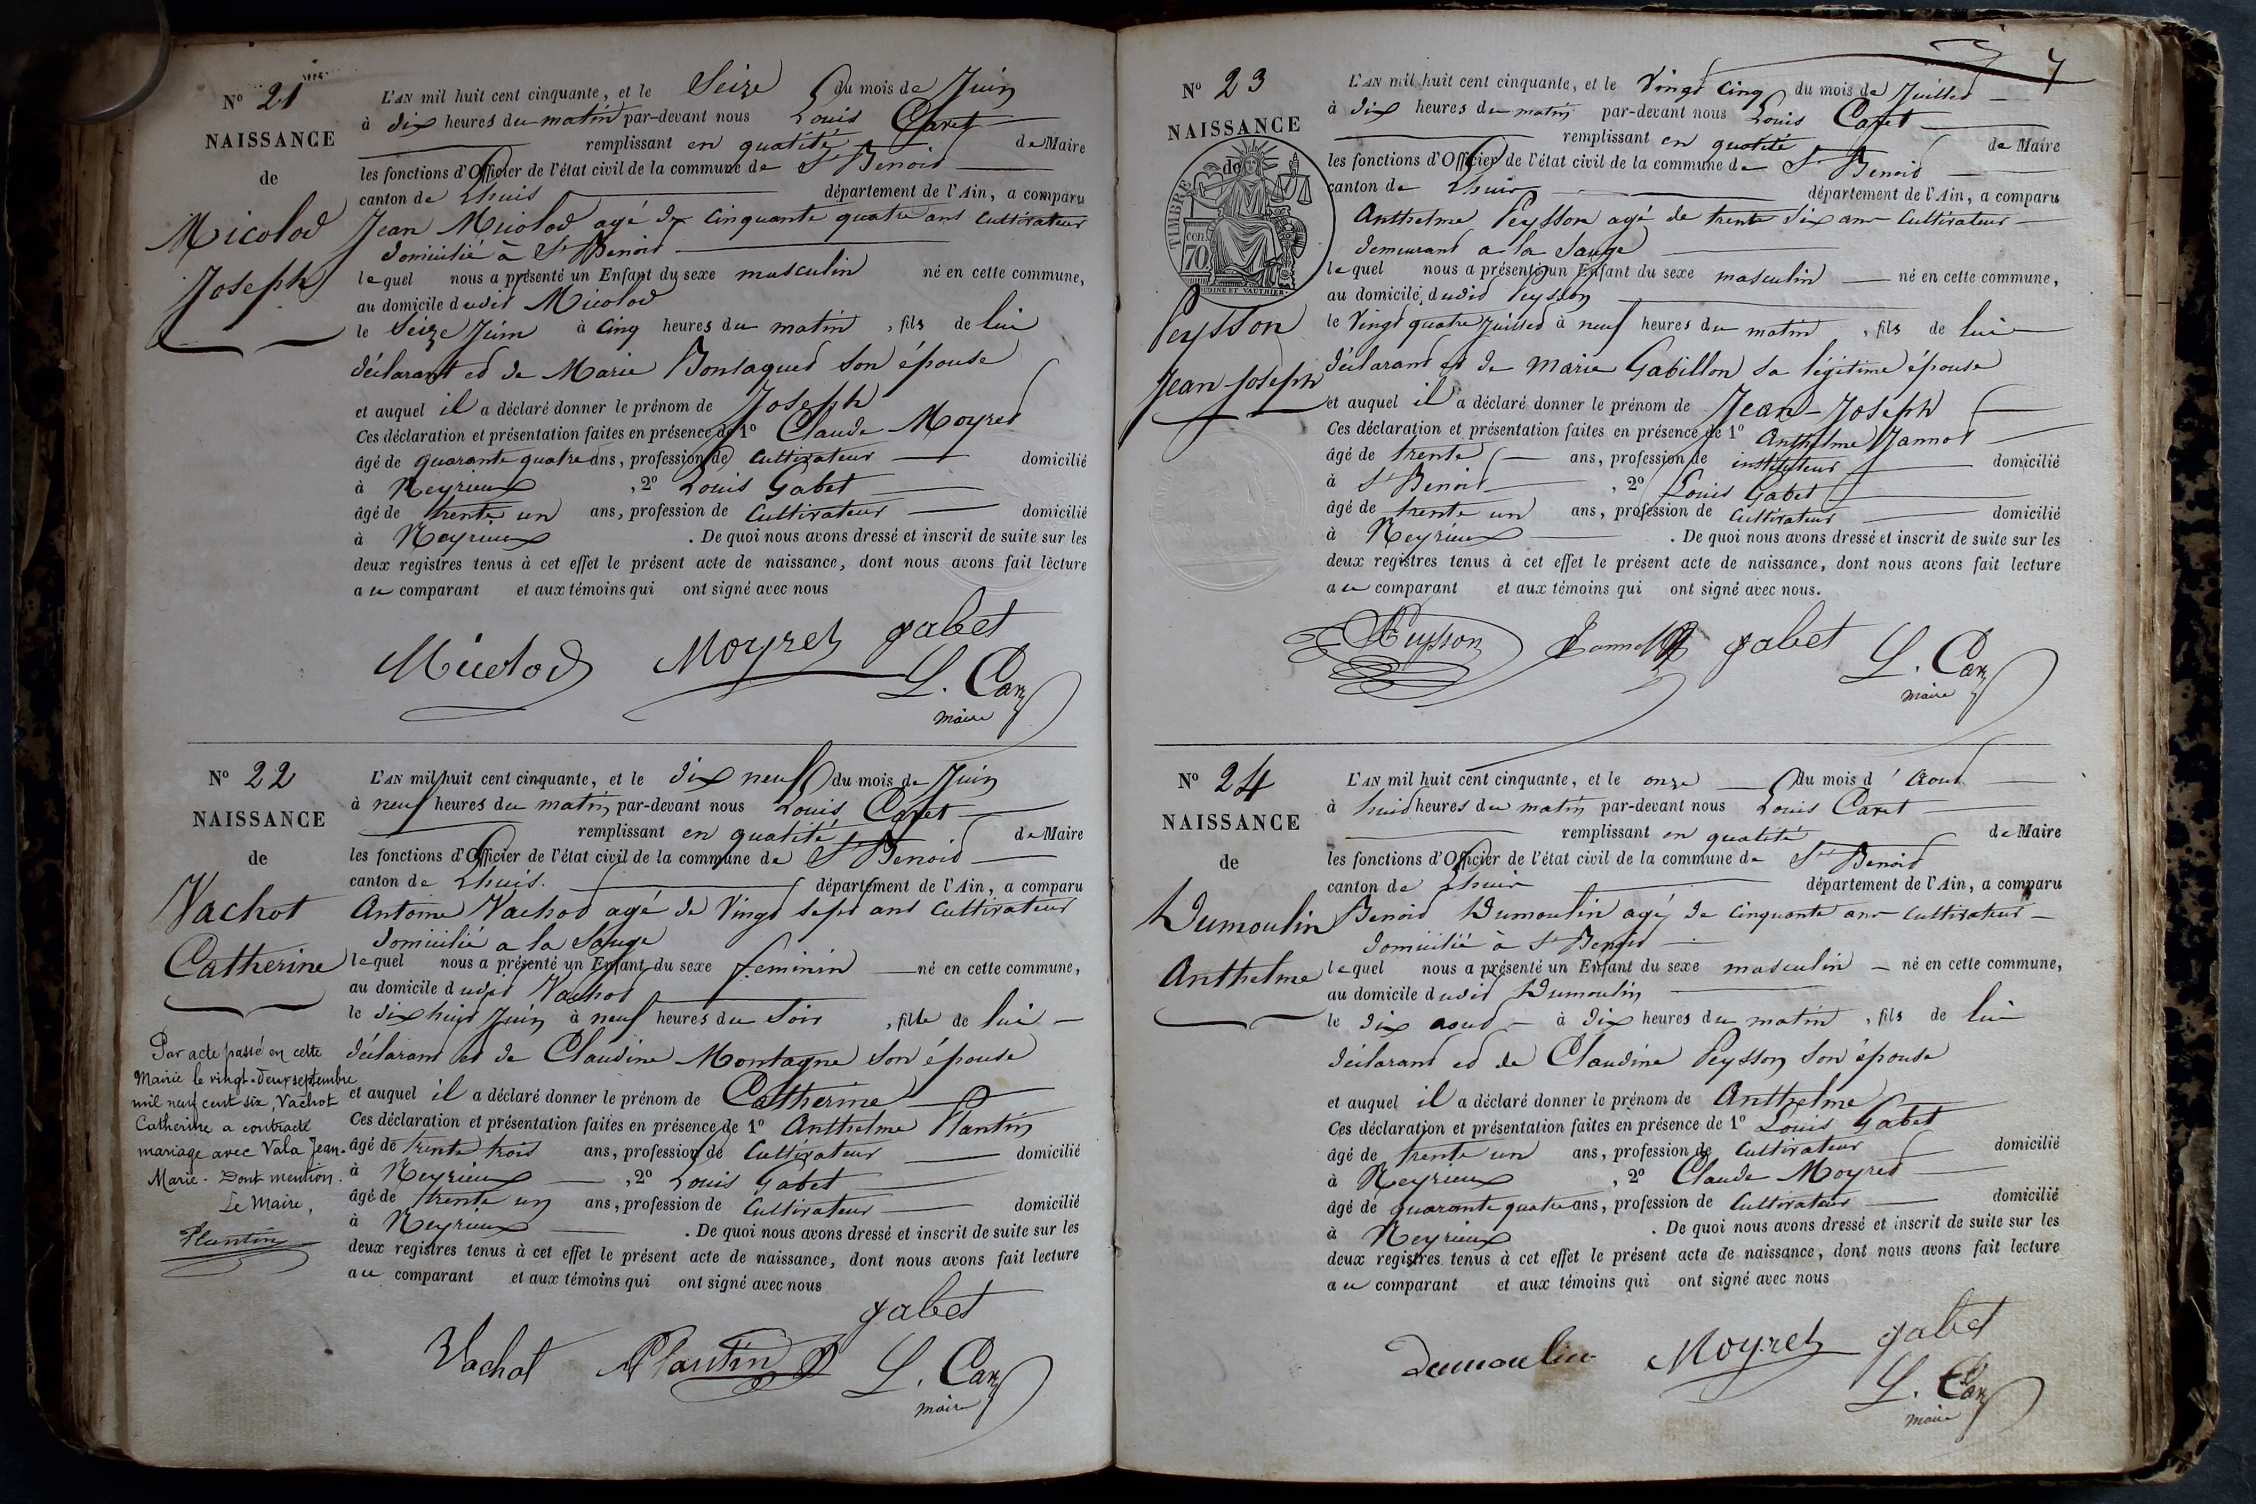 N° 21
NAISSANCE
de
Micolod
Joseph
L'AN mil huit cent cinquante, et le Seize du mois de Juin
à dix heures du matin par-devant nous Louis Caret
remplissant en qualité de Maire
les fonctions d'Officier de l'état civil de la commune de St Benoid
canton de Lhuis département de l'Ain, a comparu
Jean Micolod agé de cinquante quatre ans Cultivateur
domicilié à St Benoid
lequel nous a présenté un Enfant du sexe masculin né en cette commune,
au domicile dudit Micolod
le Seize Juin à Cinq heures du matin, fils de lui
déclarant et de Marie Bontaqued son épouse
et auquel il a déclaré donner le prénom de Joseph
Ces déclaration et présentation faites en présence de 1° Claude Moyred
âgé de quarante quatre ans, profession de Cultivateur domicilié
à Neyrieux, 2° Louis Gabet
âgé de trente un ans, profession de Cultivateur domicilié
à Neyrieux. De quoi nous avons dressé et inscrit de suite sur les
deux registres tenus à cet effet le présent acte de naissance, dont nous avons fait lecture
au comparant et aux témoins qui ont signé avec nous
Micolod Moyret gabet
L. Caret
maire
N° 22
NAISSANCE
de
Vachot
Catherine
Par acte passé en cette
Mairie le vingt-deux septembre
mil neuf cent six, Vachot
Catherine a contracté
mariage avec Vala Jean-
Marie. Dont mention.
Le Maire,
Plantin
L'AN mil huit cent cinquante, et le dix neuf du mois de Juin
à neuf heures du matin par-devant nous Louis Caret
remplissant en qualité de Maire
les fonctions d'Officier de l'état civil de la commune de St Benoid
canton de Lhuis. département de l'Ain, a comparu
Antoine Vachod agé de Vingt sept ans Cultivateur
domicilié a la Sauge
lequel nous a présenté un Enfant du sexe feminin né en cette commune,
au domicile dudit Vachod
le dix huit Juin à neuf heures du Soir, fille de lui
déclarant et de Claudine Montagne son épouse
et auquel il a déclaré donner le prénom de Catherine
Ces déclaration et présentation faites en présence de 1° Anthelme Plantin
âgé de trente trois ans, profession de Cultivateur domicilié
à Neyrieux, 2° Louis Gabet
âgé de trente un ans, profession de Cultivateur domicilié
à Neyrieux. De quoi nous avons dressé et inscrit de suite sur les
deux registres tenus à cet effet le présent acte de naissance, dont nous avons fait lecture
au comparant et aux témoins qui ont signé avec nous
gabet
Vachot Plantin L. Caret
maire
7
N° 23
NAISSANCE
de
TIMBRE
cen
70
Peysson
Jean Joseph
L'AN mil huit cent cinquante, et le Vingt Cinq du mois de Juillet
à dix heures du matin par-devant nous Louis Caret
remplissant en qualité de Maire
les fonctions d'Officier de l'état civil de la commune de St Benoid
canton de Lhuis département de l'Ain, a comparu
Anthelme Peysson agé de trente six ans Cultivateur
demeurant a la Sauge
lequel nous a présenté un Enfant du sexe masculin né en cette commune,
au domicile dudit Peysson
le Vingt quatre Juillet à neuf heures du matin, fils de lui
déclarant et de Marie Gabillon sa légitime épouse
et auquel il a déclaré donner le prénom de Jean-Joseph
Ces déclaration et présentation faites en présence de 1° Anthelme Jannot
âgé de trente ans, profession de instituteur domicilié
à St Benoid, 2° Louis Gabet
âgé de trente un ans, profession de Cultivateur domicilié
à Neyrieux. De quoi nous avons dressé et inscrit de suite sur les
deux registres tenus à cet effet le présent acte de naissance, dont nous avons fait lecture
au comparant et aux témoins qui ont signé avec nous.
Peysson Jannot gabet L. Caret
maire
N° 24
NAISSANCE
de
Dumoulin
Anthelme
L'AN mil huit cent cinquante, et le onze du mois d'Aout
à huit heures du matin par-devant nous Louis Caret
remplissant en qualité de Maire
les fonctions d'Officier de l'état civil de la commune de St Benoid
canton de Lhuis département de l'Ain, a comparu
Benoid Dumoulin agé de cinquante ans Cultivateur
domicilié à St Benoid
lequel nous a présenté un Enfant du sexe masculin né en cette commune,
au domicile dudit Dumoulin
le dix aout à dix heures du matin, fils de lui
déclarant et de Claudine Peysson son épouse
et auquel il a déclaré donner le prénom de Anthelme
Ces déclaration et présentation faites en présence de 1° Louis Gabet
âgé de trente un ans, profession de Cultivateur domicilié
à Neyrieux, 2° Claude Moyred
âgé de quarante quatre ans, profession de Cultivateur domicilié
à Neyrieux. De quoi nous avons dressé et inscrit de suite sur les
deux registres tenus à cet effet le présent acte de naissance, dont nous avons fait lecture
au comparant et aux témoins qui ont signé avec nous
Dumoulin Moyret gabet
L. Caret
maire